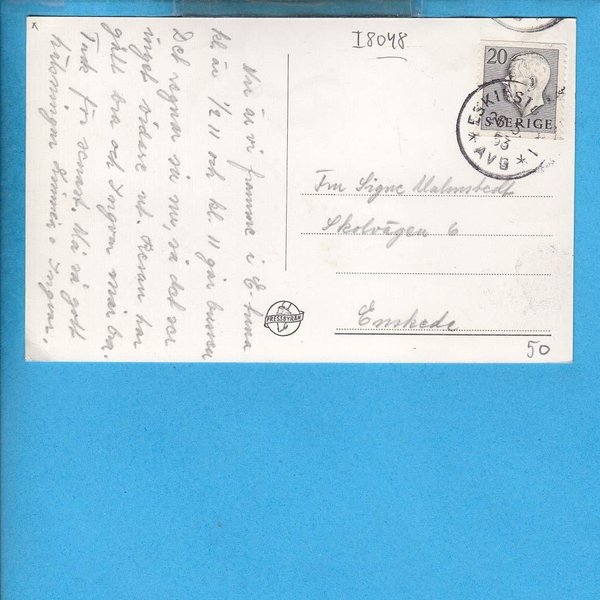 I8048
20
SVERIGE
ESKILST
26 3
53
AVG
Nu är vi framme i E-tuna
kl är 1/2 11 och kl. 11 går bussen
Det regnar så nu, så det ser
inget vidare ut. Resan har
gått bra och Ingvar mår bra.
Tack för senast. Må så gott
hälsningar o Ingvar.
Fru Signe Malmstedt
Skolvägen 6
Enskede
PRESSBYRÅN
50